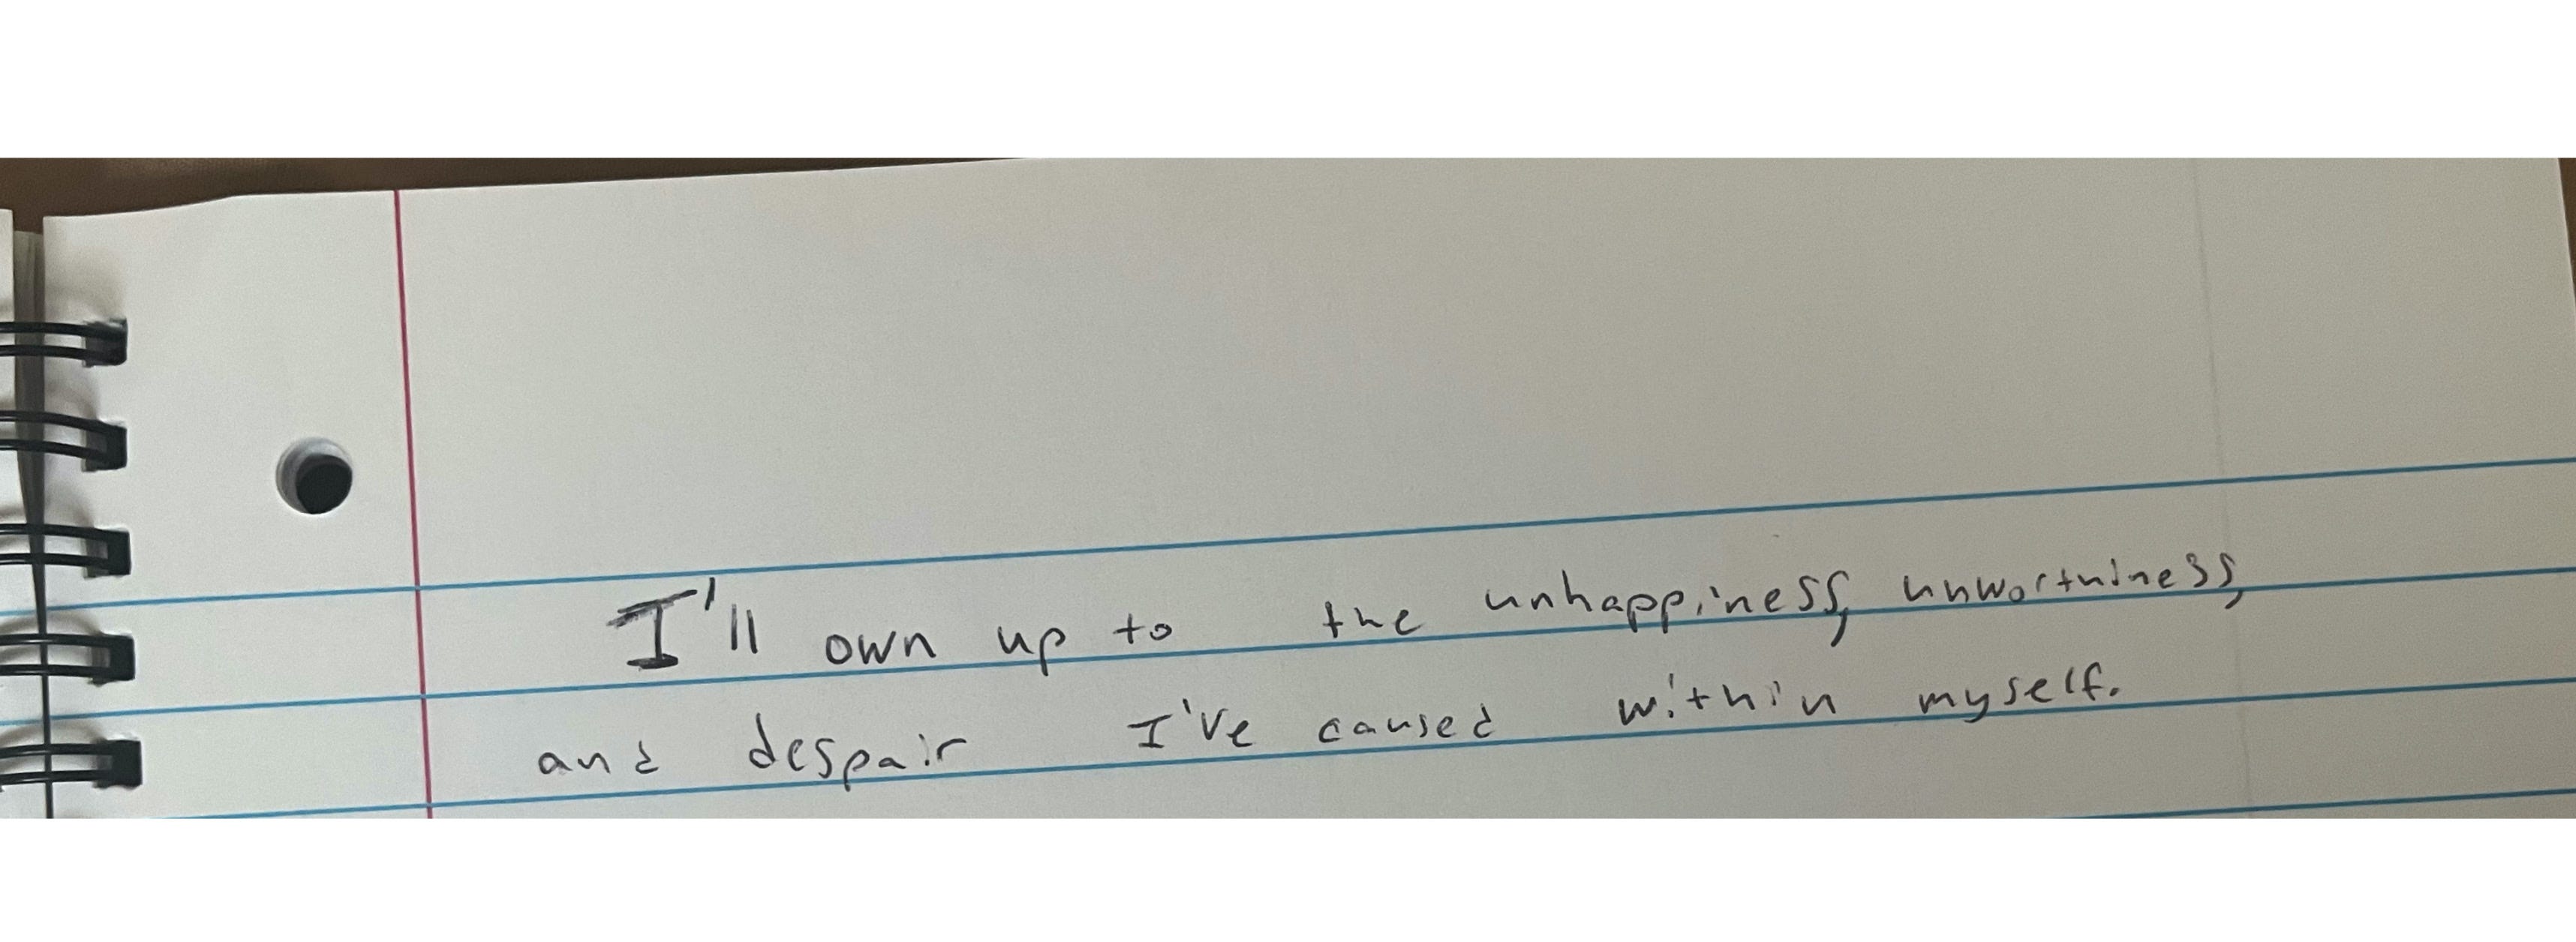 I'll own up to the unhappiness, unworthiness,
and despair I've caused within myself.